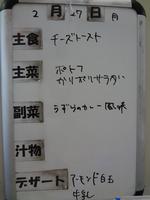 2月27日 月
主食 チーズトースト
主菜 ポトフ
カリポリサラダ
副菜 うずらのカレー風味
汁物
デザート アーモンド白玉
牛乳